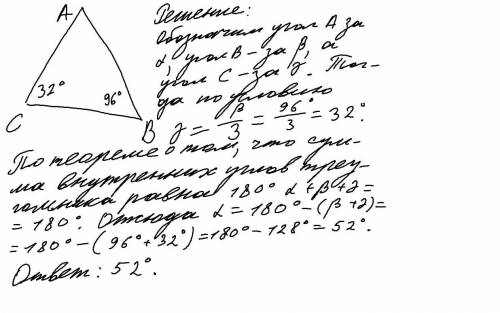 A
32°
96°
C
B
Решение:
Обозначим угол A за
α, угол B – за β, а
угол C – за γ. Тог-
да по условию
γ = β/3 = 96°/3 = 32°.
По теореме о том, что сум-
ма внутренних углов треу-
гольника равна 180° α+β+γ=
= 180°. Отсюда α = 180° – (β+γ)=
= 180° – (96°+32°) = 180° – 128° = 52°.
Ответ: 52°.